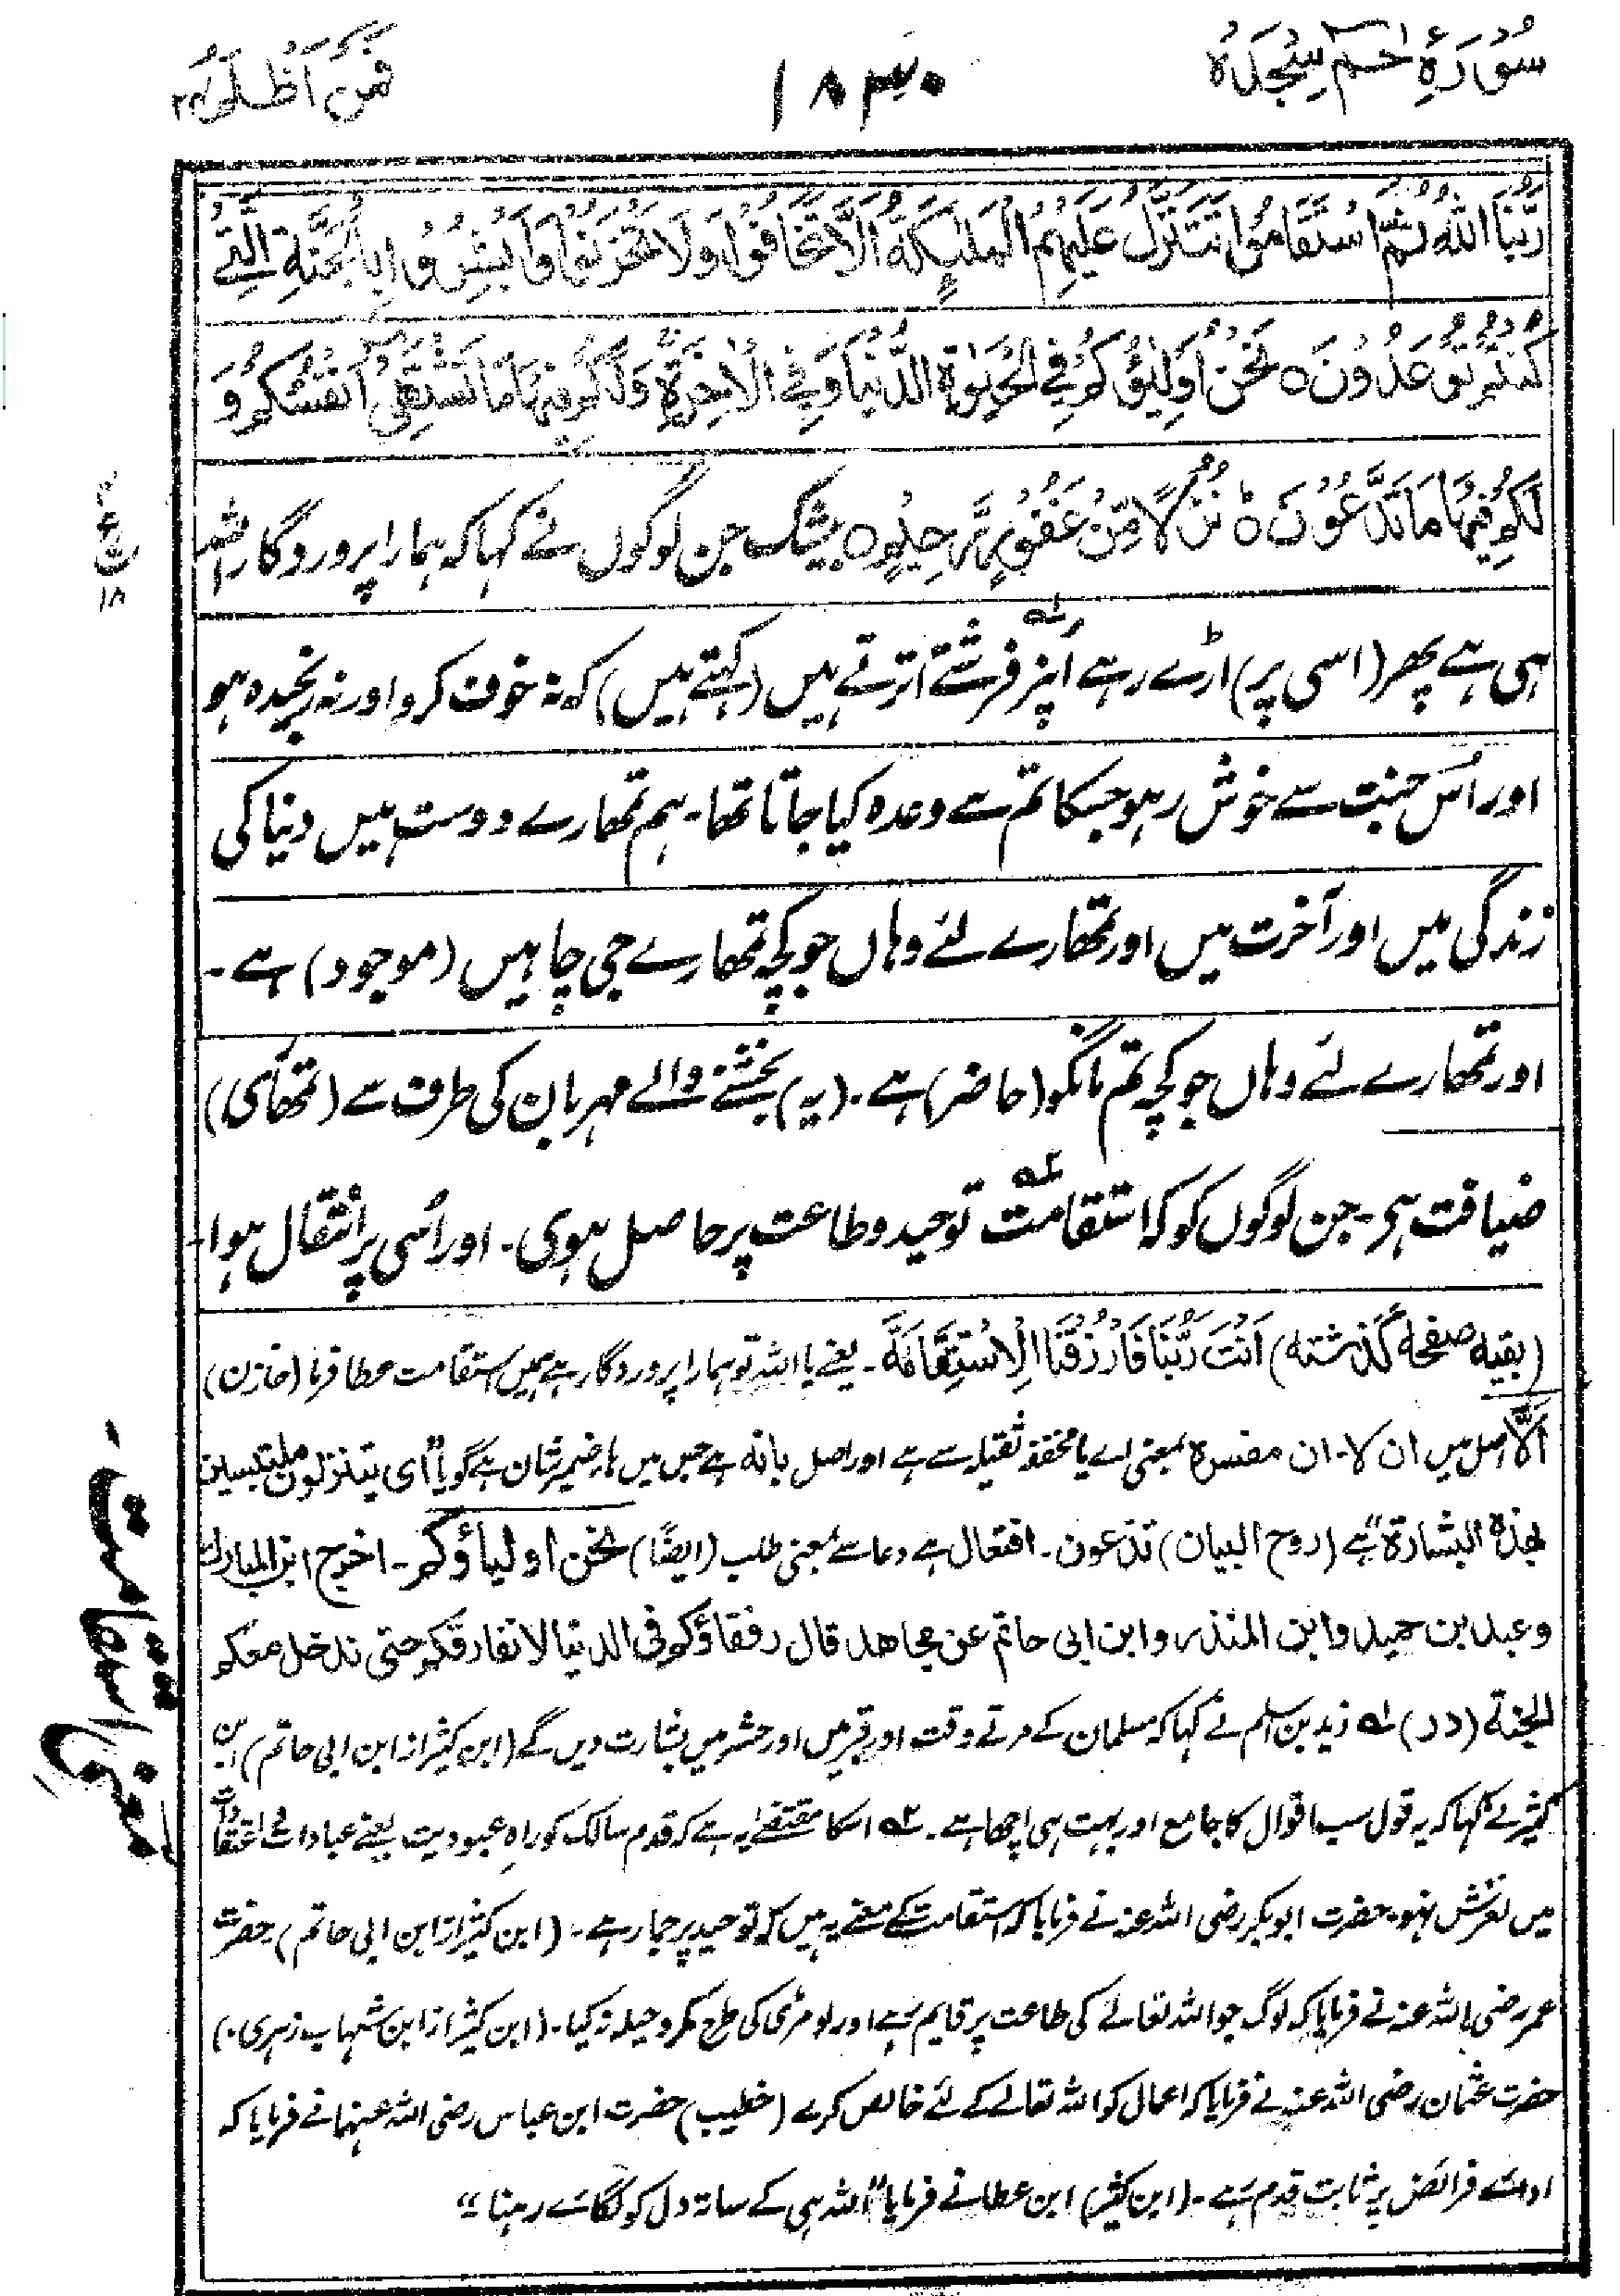 سُوْرَۃِ حٰمٓ سِجْدَہْ
۱۸۳۰
فَمَنْ اَظْلَمُ ۲۴
رَبُّنَا اللّٰهُ ثُمَّ اسْتَقَامُوْا تَتَنَزَّلُ عَلَيْهِمُ الْمَلٰٓئِكَةُ اَلَّا تَخَافُوْا وَلَا تَحْزَنُوْا وَاَبْشِرُوْا بِالْجَنَّةِ الَّتِيْ
كُنْتُمْ تُوْعَدُوْنَ ○ نَحْنُ اَوْلِيٰٓؤُكُمْ فِي الْحَيٰوةِ الدُّنْيَا وَفِي الْاٰخِرَةِ ۚ وَلَكُمْ فِيْهَا مَا تَشْتَهِيْٓ اَنْفُسُكُمْ وَ
لَكُمْ فِيْهَا مَا تَدَّعُوْنَ ○ نُزُلًا مِّنْ غَفُوْرٍ رَّحِيْمٍ ○ بیشک جن لوگوں نے کہا کہ ہمارا پروردگار اللہ
ع
۱۸
ہی ہے پھر (اسی پر) اڑے رہے اُنپر فرشتے اترتے ہیں (کہتے ہیں) کہ نہ خوف کرو اور نہ رنجیدہ ہو
اور اُس جنت سے خوش رہو جسکا تم سے وعدہ کیا جاتا تھا۔ ہم تمھارے دوست ہیں دنیا کی
زندگی میں اور آخرت میں اور تمھارے لئے وہاں جو کچھ تمھارے جی چاہیں (موجود) ہے۔
اور تمھارے لئے وہاں جو کچھ تم مانگو (حاضر) ہے۔ (یہ) بخشنے والے مہربان کی طرف سے (تمھاری)
ضیافت ہی۔ جن لوگوں کو کہ استقامت توحید و طاعت پر حاصل ہوی۔ اور اُسی پر انتقال ہوا۔
(بقیہ صفحہ گذشتہ) اَنْتَ رَبُّنَا فَارْزُقْنَا الْاِسْتِقَامَةَ۔ یعنے یا اللہ تو ہمارا پروردگار ہے ہمیں استقامت عطا فرما (خازن)
اَلَّا اصل میں ان لا۔ ان مفسرہ بمعنی اے یا مخففہ ثقیلہ سے ہے اور اصل بانہ ہے جس میں ہا ضمیر شان ہے گویا "ای یتنزلون ملتبسین
بہذہ البشارۃ" ہے (روح البیان) تدعون۔ افتعال ہے دعا سے بمعنی طلب (ایضًا) نحن اولیاؤکم۔ اخرج ابن المبارک
وعبد ابن حمید وابن المنذر وابن ابی حاتم عن مجاهد قال رفقاؤکم فی الدنیا لا نفارقکم حتی ندخل معکم
الجنۃ (در) ؎۱ زید بن اسلم نے کہا کہ مسلمان کے مرتے وقت اور قبر میں اور حشر میں بشارت دیں گے (ابن کثیر از ابن ابی حاتم) ابن
کثیر نے کہا کہ یہ قول سب اقوال کا جامع اور بہت ہی اچھا ہے۔ ؎۲ اسکا مقتضےٰ یہ ہے کہ قدم سالک کو راہِ عبودیت یعنے عبادات و اعتقادات
میں لغزش نہو۔ حضرت ابوبکر رضی اللہ عنہ نے فرمایا کہ استقامت کے معنے یہ ہیں کہ توحید پر جما رہے۔ (ابن کثیر از ابن ابی حاتم) حضرت
عمر رضی اللہ عنہ نے فرمایا کہ لوگ جو اللہ تعالےٰ کی طاعت پر قایم رہے اور لومڑی کی طرح مکر و حیلہ نہ کیا۔ (ابن کثیر از ابن شہاب زہری۔)
حضرت عثمان رضی اللہ عنہ نے فرمایا کہ اعمال کو اللہ تعالےٰ کے لئے خالص کرے (خطیب) حضرت ابن عباس رضی اللہ عنہما نے فرمایا کہ
ادائے فرائض پر ثابت قدم رہے۔ (ابن کثیر) ابن عطا نے فرمایا "اللہ ہی کے ساتہ دل کو لگائے رہنا"
معنی استقامت۔